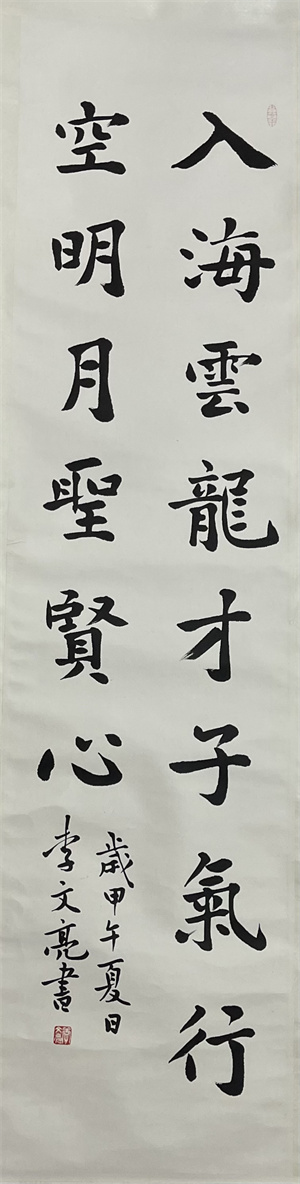 入海雲龍才子氣行
空明月聖賢心
歲甲午夏日
李文亮書